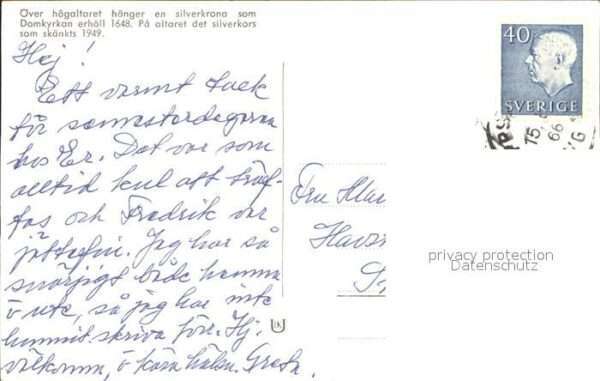 Över högaltaret hänger en silverkrona som
Domkyrkan erhöll 1648. På altaret det silverkors
som skänkts 1949.
Hej!
Ett varmt tack
för semesterdagarna
hos Er. Det var som
alltid kul att träf-
fas och Fredrik var
jättefin. Jag har så
snärjigt både hemma
o ute, så jag har inte
hunnit skriva förr. Hj.
välkomna, o kära häln. Greta.
40
SVERIGE
15.
66
Fru
privacy protection
Datenschutz